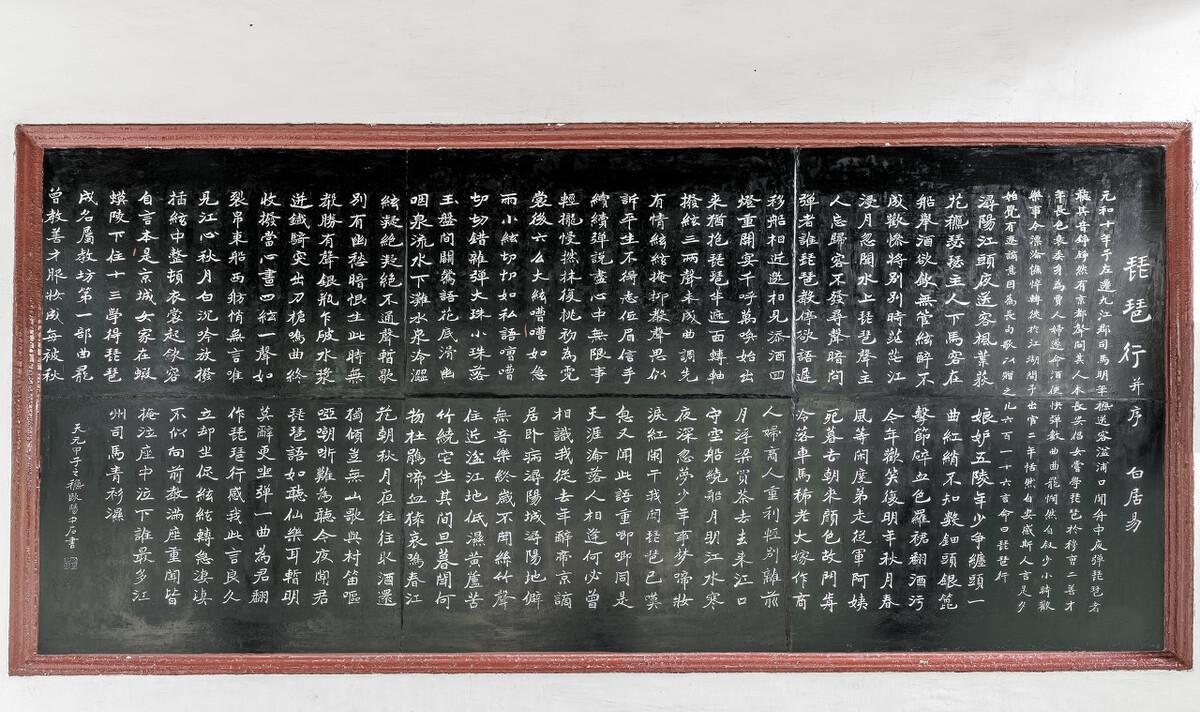 琵琶行并序 白居易
元和十年予左遷九江郡司馬明年秋送客湓浦口聞舟中夜彈琵琶者
聽其音錚錚然有京都聲問其人本長安倡女嘗學琵琶於穆曹二善才
年長色衰委身為賈人婦遂命酒使快彈數曲曲罷憫然自敘少小時歡
樂事今漂淪憔悴轉徙於江湖間予出官二年恬然自安感斯人言是夕
始覺有遷謫意因為長句歌以贈之凡六百一十六言命曰琵琶行
潯陽江頭夜送客楓葉荻
花秋瑟瑟主人下馬客在
船舉酒欲飲無管絃醉不
成歡慘將別別時茫茫江
浸月忽聞水上琵琶聲主
人忘歸客不發尋聲暗問
彈者誰琵琶聲停欲語遲
移船相近邀相見添酒回
燈重開宴千呼萬喚始出
來猶抱琵琶半遮面轉軸
撥絃三兩聲未成曲調先
有情絃絃掩抑聲聲思似
訴平生不得志低眉信手
續續彈說盡心中無限事
輕攏慢撚抹復挑初為霓
裳後六么大絃嘈嘈如急
雨小絃切切如私語嘈嘈
切切錯雜彈大珠小珠落
玉盤間關鶯語花底滑幽
咽泉流水下灘水泉冷澀
絃凝絕凝絕不通聲暫歇
別有幽愁暗恨生此時無
聲勝有聲銀瓶乍破水漿
迸鐵騎突出刀槍鳴曲終
收撥當心畫四絃一聲如
裂帛東船西舫悄無言唯
見江心秋月白沉吟放撥
插絃中整頓衣裳起斂容
自言本是京城女家在蝦
蟆陵下住十三學得琵琶
成名屬教坊第一部曲罷
曾教善才服妝成每被秋
娘妒五陵年少爭纏頭一
曲紅綃不知數鈿頭銀篦
擊節碎血色羅裙翻酒污
今年歡笑復明年秋月春
風等閑度弟走從軍阿姨
死暮去朝來顏色故門前
冷落車馬稀老大嫁作商
人婦商人重利輕別離前
月浮梁買茶去去來江口
守空船繞船月明江水寒
夜深忽夢少年事夢啼妝
淚紅闌干我聞琵琶已嘆
息又聞此語重唧唧同是
天涯淪落人相逢何必曾
相識我從去年辭帝京謫
居臥病潯陽城潯陽地僻
無音樂終歲不聞絲竹聲
住近湓江地低濕黃蘆苦
竹繞宅生其間旦暮聞何
物杜鵑啼血猿哀鳴春江
花朝秋月夜往往取酒還
獨傾豈無山歌與村笛嘔
啞嘲哳難為聽今夜聞君
琵琶語如聽仙樂耳暫明
莫辭更坐彈一曲為君翻
作琵琶行感我此言良久
立却坐促絃絃轉急淒淒
不似向前聲滿座重聞皆
掩泣座中泣下誰最多江
州司馬青衫濕
天元甲子之秋歐陽中石書